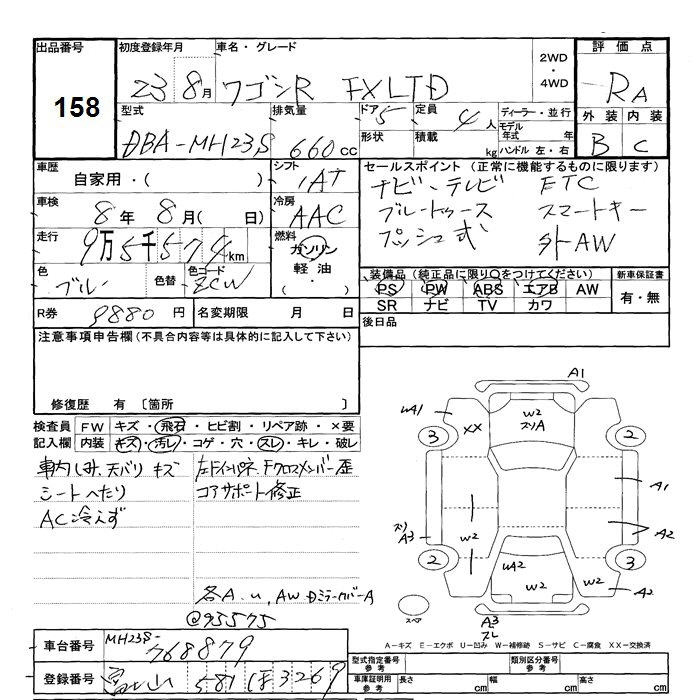 出品番号 初度登録年月 車名・グレード 2WD・4WD 評価点
158
23 8月 ワゴンR FX LTD RA
型式 排気量 ドア 5 定員 4人 ディーラー・並行
外装 内装
形状 積載 kg モデル年式 年
DBA-MH23S 660cc ハンドル 左・右 B C
車歴 自家用・( ) シフト セールスポイント (正常に機能するものに限ります)
IAT ナビ・テレビ ETC
車検 8年 8月( 日) 冷房 AAC ブルートゥース スマートキー
走行 9万5千574km 燃料 ガソリン プッシュ式 外AW
軽油
( ・ )
色 ブルー 色替 色コード ZCW
装備品 (純正品に限り○をつけてください) 新車保証書
PS PW ABS エアB AW 有・無
SR ナビ TV カワ
R券 9880円 名変期限 月 日 後日品
注意事項申告欄(不具合内容等は具体的に記入して下さい)
修復歴 有 〔箇所
検査員記入欄 FW キズ・飛石・ヒビ割・リペア跡・×要
内装 キズ・汚レ・コゲ・穴・スレ・キレ・破レ
車内しみ、天バリ キズ
シートへたり
AC冷えず
左Fインパネ、Fクロスメンバー歪
コアサポート修正
各A.U,AW.DミラーカバーA
@95575
A1
UA1 W2 ズリA
3 XX 2
A1
ズリ A3 W2 A2
2 UA2 W2 W2 3 A2
スペア A3 ズレ
A-キズ E-エクボ U-凹み W-補修跡 S-サビ C-腐食 XX-交換済
車台番号 MH23S-768879
型式指定番号 参考 類別区分番号 参考
登録番号 富山 581 ほ 3269
車庫証明用 参考 長さ cm 幅 cm 高さ cm